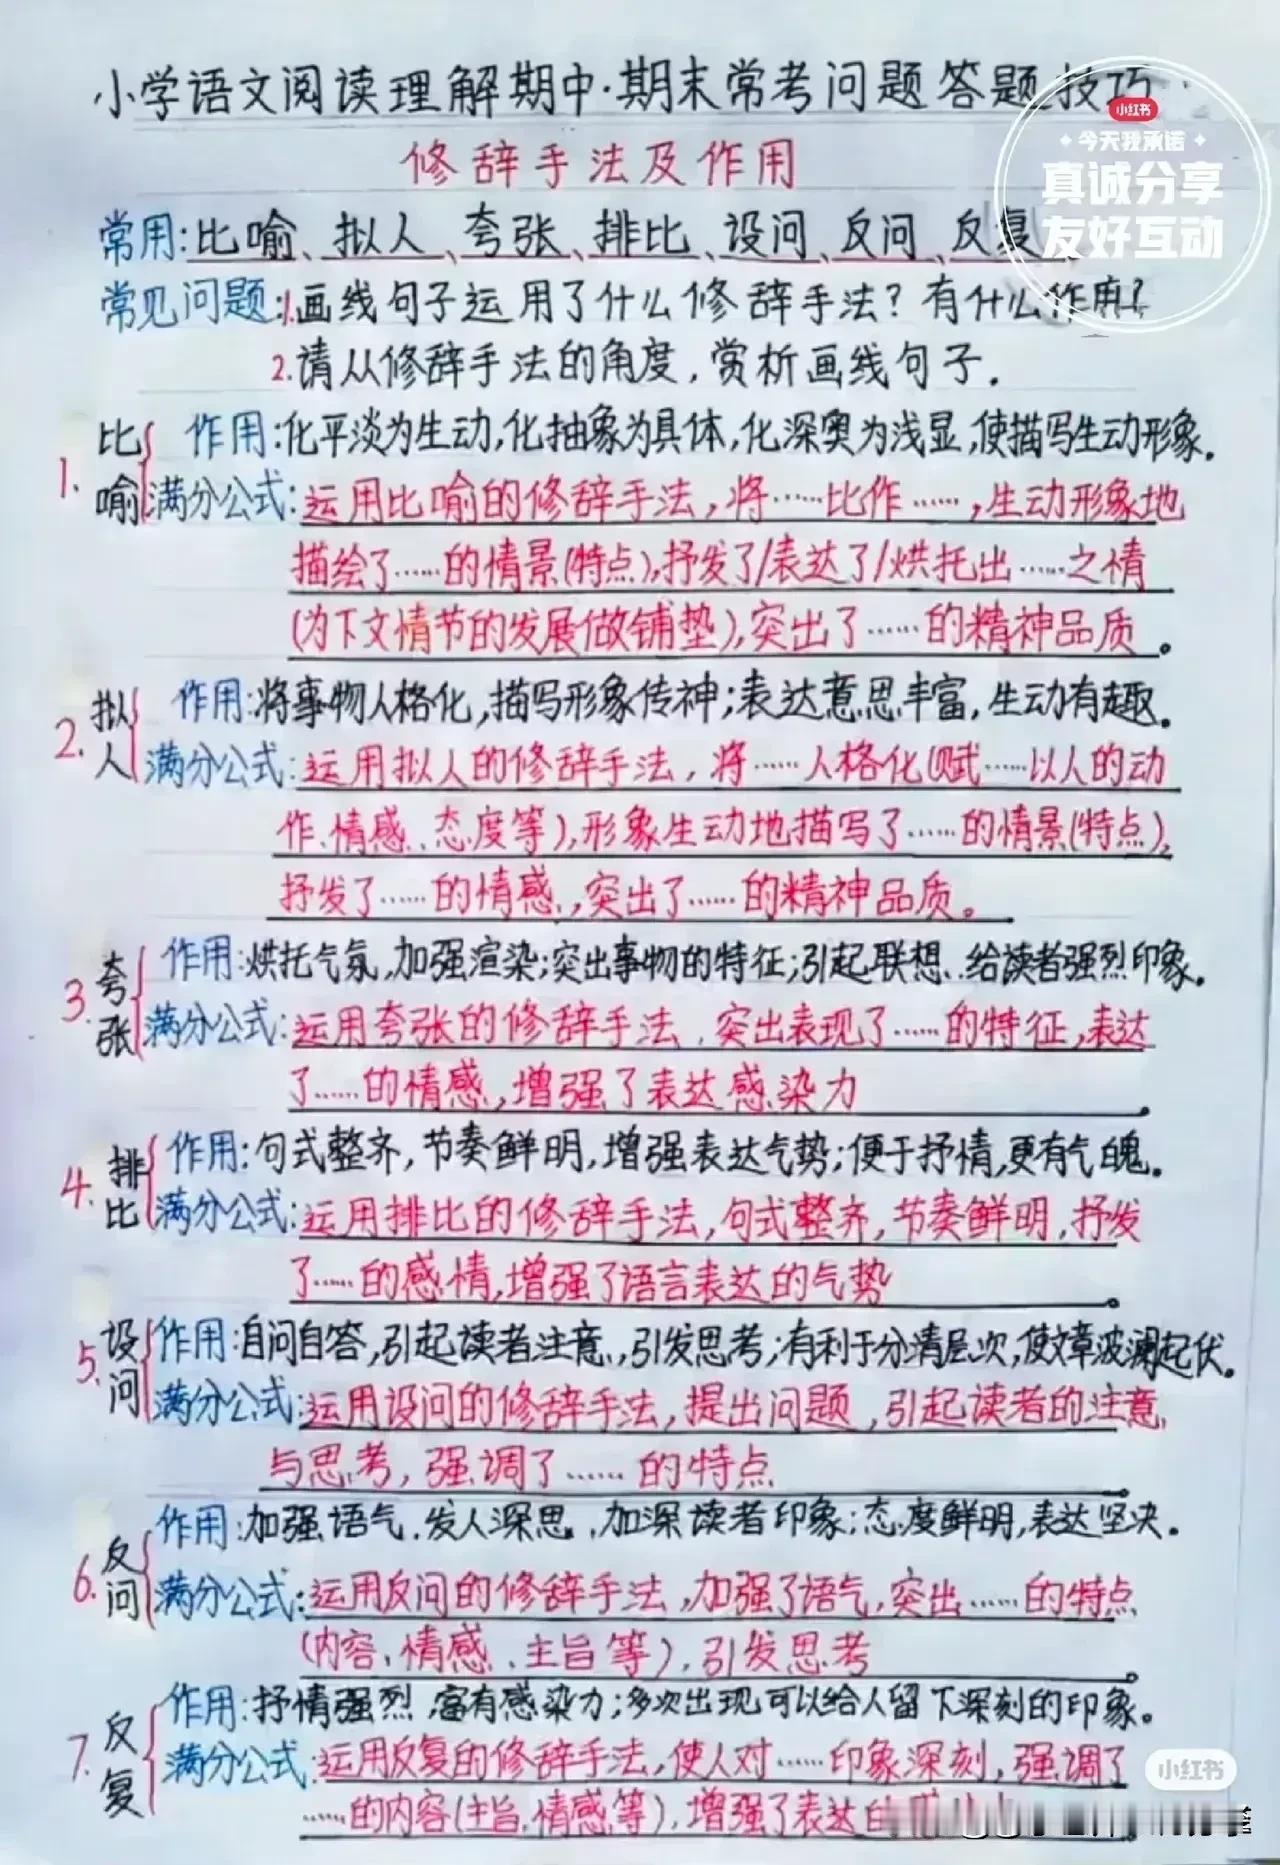 小学语文阅读理解期中·期末常考问题答题技巧
小红书
今天我承诺
真诚分享
友好互动
修辞手法及作用
常用:比喻、拟人、夸张、排比、设问、反问、反复
常见问题:1.画线句子运用了什么修辞手法?有什么作用?
2.请从修辞手法的角度,赏析画线句子.
1.比喻
作用:化平淡为生动,化抽象为具体,化深奥为浅显,使描写生动形象.
满分公式:运用比喻的修辞手法,将……比作……,生动形象地
描绘了……的情景(特点),抒发了/表达了/烘托出……之情
(为下文情节的发展做铺垫),突出了……的精神品质。
2.拟人
作用:将事物人格化,描写形象传神;表达意思丰富,生动有趣。
满分公式:运用拟人的修辞手法,将……人格化(赋……以人的动
作、情感、态度等),形象生动地描写了……的情景(特点),
抒发了……的情感,突出了……的精神品质。
3.夸张
作用:烘托气氛,加强渲染;突出事物的特征;引起联想,给读者强烈印象。
满分公式:运用夸张的修辞手法,突出表现了……的特征,表达
了……的情感,增强了表达感染力。
4.排比
作用:句式整齐,节奏鲜明,增强表达气势;便于抒情,更有气魄。
满分公式:运用排比的修辞手法,句式整齐,节奏鲜明,抒发
了……的感情,增强了语言表达的气势。
5.设问
作用:自问自答,引起读者注意,引发思考;有利于分清层次,使文章波澜起伏。
满分公式:运用设问的修辞手法,提出问题,引起读者的注意
与思考,强调了……的特点。
6.反问
作用:加强语气,发人深思,加深读者印象;态度鲜明,表达坚决。
满分公式:运用反问的修辞手法,加强了语气,突出……的特点
(内容、情感、主旨等),引发思考。
7.反复
作用:抒情强烈,富有感染力;多次出现可以给人留下深刻的印象。
满分公式:运用反复的修辞手法,使人对……印象深刻,强调了
……的内容(主旨,情感等),增强了表达的
小红书